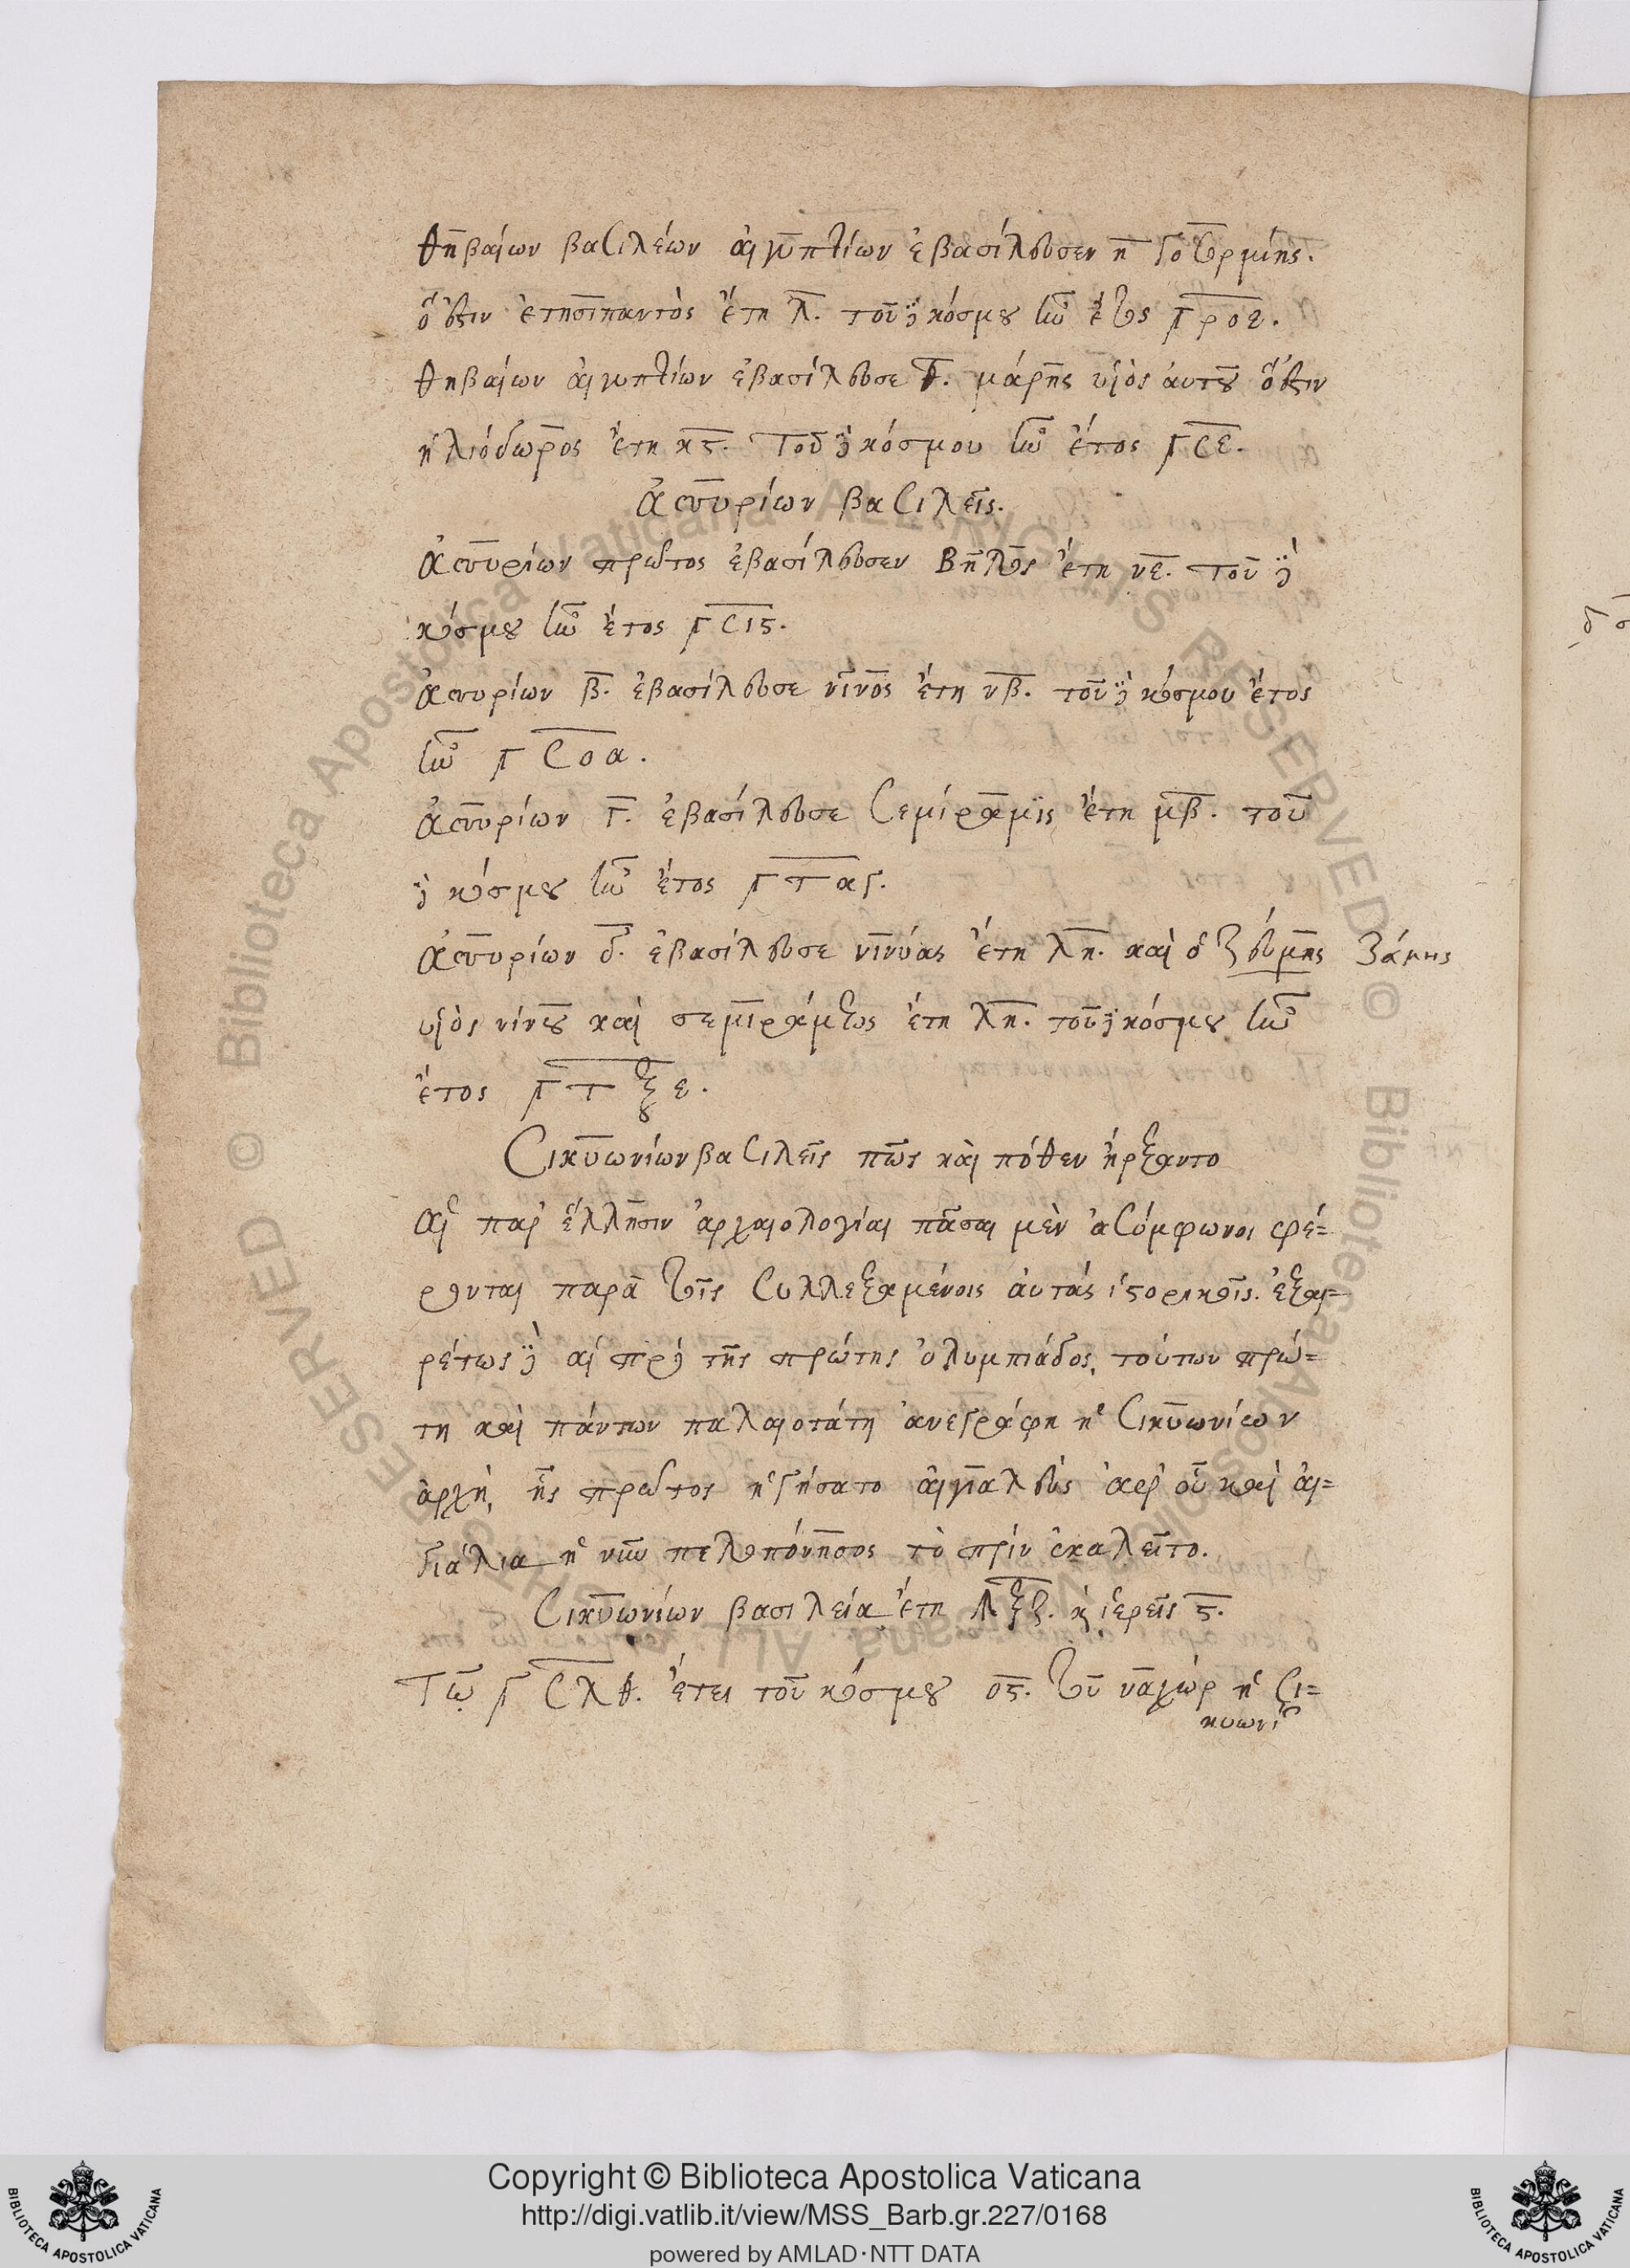 θηβαίων βασιλέων αἰγυπτίων ἐβασίλευσεν η̄ γοσορμίης.
ὅ ἐστιν ἐτησίπαντὸς ἔτη λ̄. τοῦ δὲ κόσμου ἦν ἔτος ͵γροε.
θηβαίων αἰγυπτίων ἐβασίλευσε θ̄. μάρης υἱὸς αὐτοῦ ὅ ἐστιν
ἡλιόδωρος ἔτη κϛ. τοῦ δὲ κόσμου ἦν ἔτος ͵γσε.
Ἀσσυρίων βασιλεῖς.
Ἀσσυρίων πρῶτος ἐβασίλευσεν Βῆλος ἔτη νε. τοῦ δὲ
κόσμου ἦν ἔτος ͵γσιϛ.
Ἀσσυρίων β̄. ἐβασίλευσε νῖνος ἔτη νβ. τοῦ δὲ κόσμου ἔτος
ἦν ͵γσοα.
Ἀσσυρίων γ̄. ἐβασίλευσε σεμίραμϊς ἔτη μβ. τοῦ
δὲ κόσμου ἦν ἔτος ͵γτκγ.
Ἀσσυρίων δ̄. ἐβασίλευσε νινύας ἔτη λη. καὶ ὁ ζεύμης ζάμης
υἱὸς νίνου καὶ σεμιράμεως ἔτη λη. τοῦ δὲ κόσμου ἦν
ἔτος ͵γτξε.
Σικυωνίων βασιλεῖς πῶς καὶ πόθεν ἤρξαντο
Αἱ παρ' ἕλλησιν ἀρχαιολογίαι πᾶσαι μὲν ἀσύμφωνοι φέ=
ρονται παρὰ τοῖς συλλεξαμένοις αὐτάς ἱστορικοῖς. ἐξαι=
ρέτως δὲ αἱ πρὸ τῆς πρώτης ὀλυμπιάδος, τούτων πρώ=
τη καὶ πάντων παλαιοτάτη ἀνεγράφη ἡ Σικυωνίων
ἀρχή, ἧς πρῶτος ἡγήσατο αἰγιαλεὺς ἀφ' οὗ καὶ αἰ=
γιάλια ἡ νῦν πελοπόνησος τὸ πρὶν ἐκαλεῖτο.
Σικυωνίων βασιλεία ἔτη ϡξζ. κ ἱερεῖς ϛ̄.
Τῷ ͵γσλθ. ἔτει τοῦ κόσμου οϛ. τοῦ ναχὼρ ἡ σι=
κυωνί
Copyright © Biblioteca Apostolica Vaticana
http://digi.vatlib.it/view/MSS_Barb.gr.227/0168
powered by AMLAD·NTT DATA